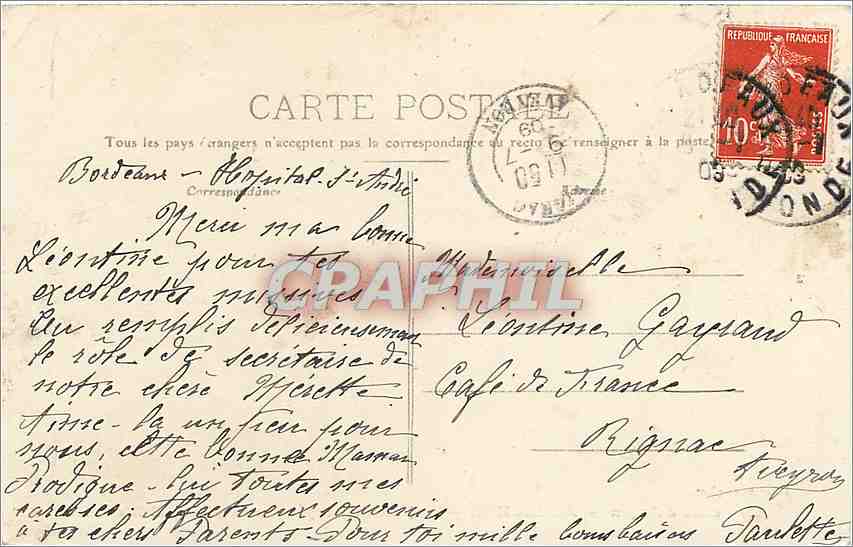 REPUBLIQUE FRANÇAISE
10
POSTES
CARTE POSTALE
Tous les pays étrangers n'acceptent pas la correspondance au recto (se renseigner à la poste)
Bordeaux - Hopital St André
Correspondance
Adresse
Merci ma bonne
Léontine pour tes
excellentes missives
Tu remplis délicieusement
le rôle de secrétaire de
notre chère Mérette
Aime-la un peu pour
nous, cette bonne Maman
Prodigue-lui toutes mes
caresses. Affectueux souvenirs
à tes chers Parents - Pour toi mille bons baisers Paulette
Mademoiselle
Léontine Gayrand
Café de France
Rignac
Aveyron
CPAPHIL
AVEYRON
11 50
9 - 7
09
GIRONDE